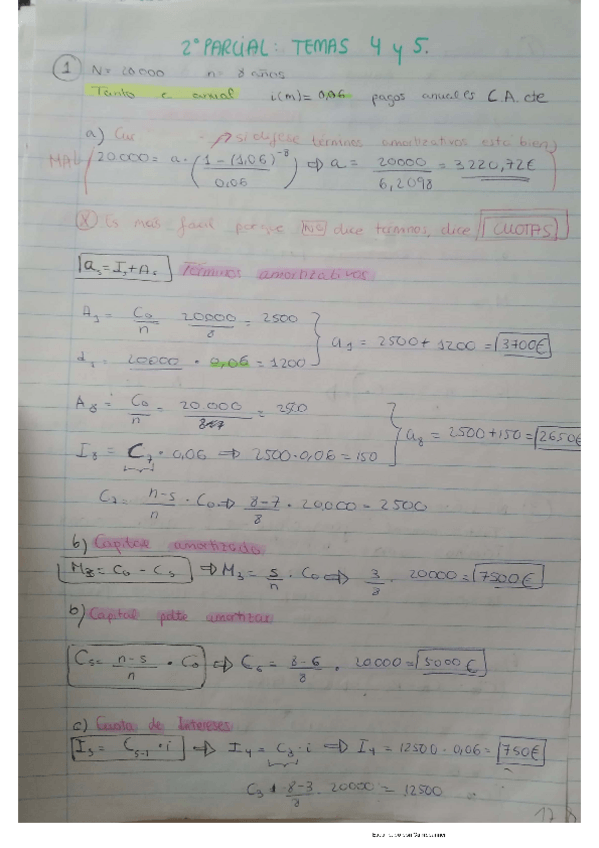 2º PARCIAL: TEMAS 4 y 5.
① N= 20000 n= 8 años
Tanto e anual i(m)= 0,06 pagos anuales C.A. cte
a) → si dijese términos amortizativos esta bien
MAL 20000 = a · (1 - (1,06)^-8 / 0,06) ⇒ a = 20000 / 6,2098 = 3220,72€
Es mas facil porque NO dice terminos, dice CUOTAS
as = Is + As Términos amortizativos
A1 = C0/n 20000/8 = 2500
a1 = 2500 + 1200 = 3700€
20000 · 0,06 = 1200
A8 = C0/n = 20.000
I8 = C7 · 0,06 ⇒ 2500 · 0,06 = 150
a8 = 2500 + 150 = 2650€
C7 = n-s/n · C0 ⇒ 8-7/8 · 20,000 = 2500
b) Capital amortizado
M3 = C0 - Cs ⇒ M3 = s/n · C0 ⇒ 3/8 · 20000 = 7500€
b) Capital pdte amortizar
Cs = n-s/n · C0 ⇒ C6 = 8-6/8 · 20000 = 5000€
c) Cuota de Intereses
Is = Cs-1 · i ⇒ I4 = C3 · i ⇒ I4 = 12500 · 0,06 = 750€
C3 8-3/8 · 20000 = 12500